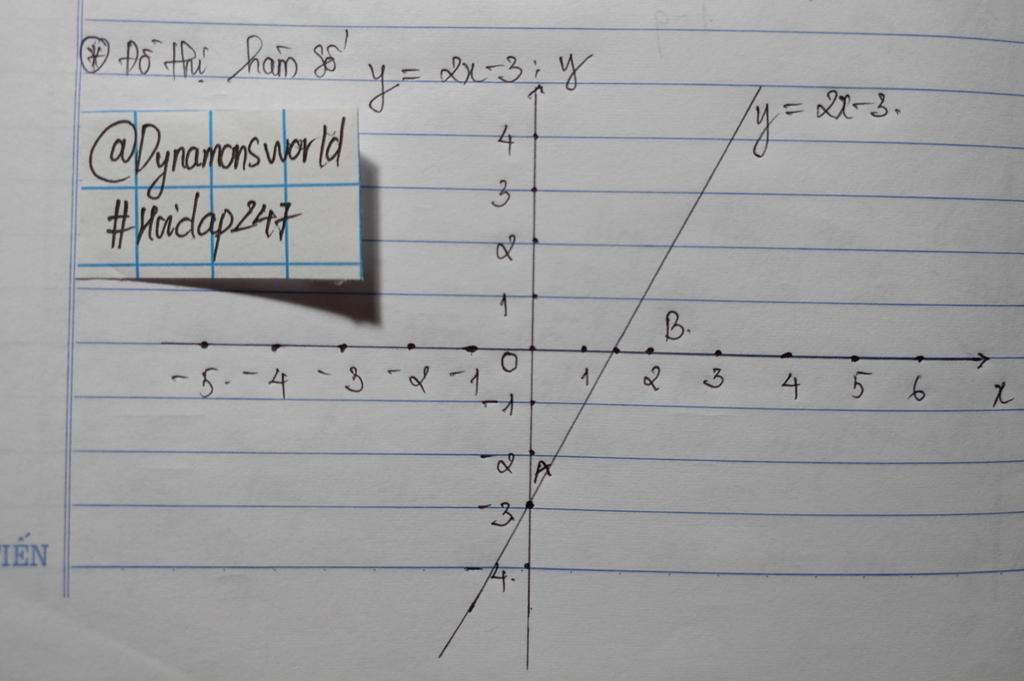 * Đồ thị hàm số y = 2x-3: y
y = 2x-3.
@Dynamonsworld
#Hoidap247
4
3
2
1
B.
0
-5. -4 -3 -2 -1 1 2 3 4 5 6 x
-1
-2 A
-3
-4.
TIẾN